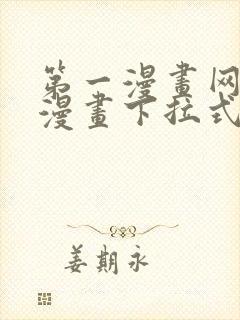 第一漫畫网
漫畫下拉式
姜期永